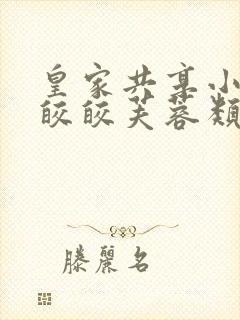 皇家共享小
皎皎芙蓉類
滕麗名